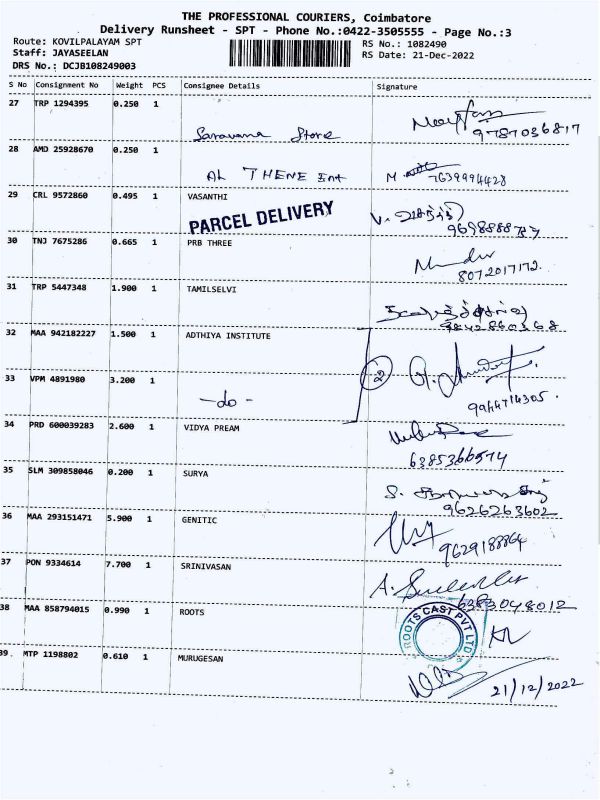 THE PROFESSIONAL COURIERS, Coimbatore
Delivery Runsheet - SPT - Phone No.:0422-3505555 - Page No.:3
Route: KOVILPALAYAM SPT RS No.: 1082490
Staff: JAYASEELAN RS Date: 21-Dec-2022
DRS No.: DCJB108249003
S No Consignment No Weight PCS Consignee Details Signature
27 TRP 1294395 0.250 1
Saravana Store 9787036817
28 AMD 25928670 0.250 1
AL THENE Ent M 7639994428
29 CRL 9572860 0.495 1 VASANTHI
PARCEL DELIVERY
30 TNJ 7675286 0.665 1 PRB THREE
8072017172.
31 TRP 5447348 1.900 1 TAMILSELVI
9842860368
32 MAA 942182227 1.500 1 ADTHIYA INSTITUTE
2
33 VPM 4891980 3.200 1
-do- 9944714305.
34 PRD 600039283 2.600 1 VIDYA PREAM
6385366574
35 SLM 309858046 0.200 1 SURYA
9626263602
36 MAA 293151471 5.900 1 GENITIC
9629188864
37 PON 9334614 7.700 1 SRINIVASAN
6383048012
38 MAA 858794015 0.990 1 ROOTS
ROOTS CAST PVT LTD
39. MTP 1198802 0.610 1 MURUGESAN
21/12/2022